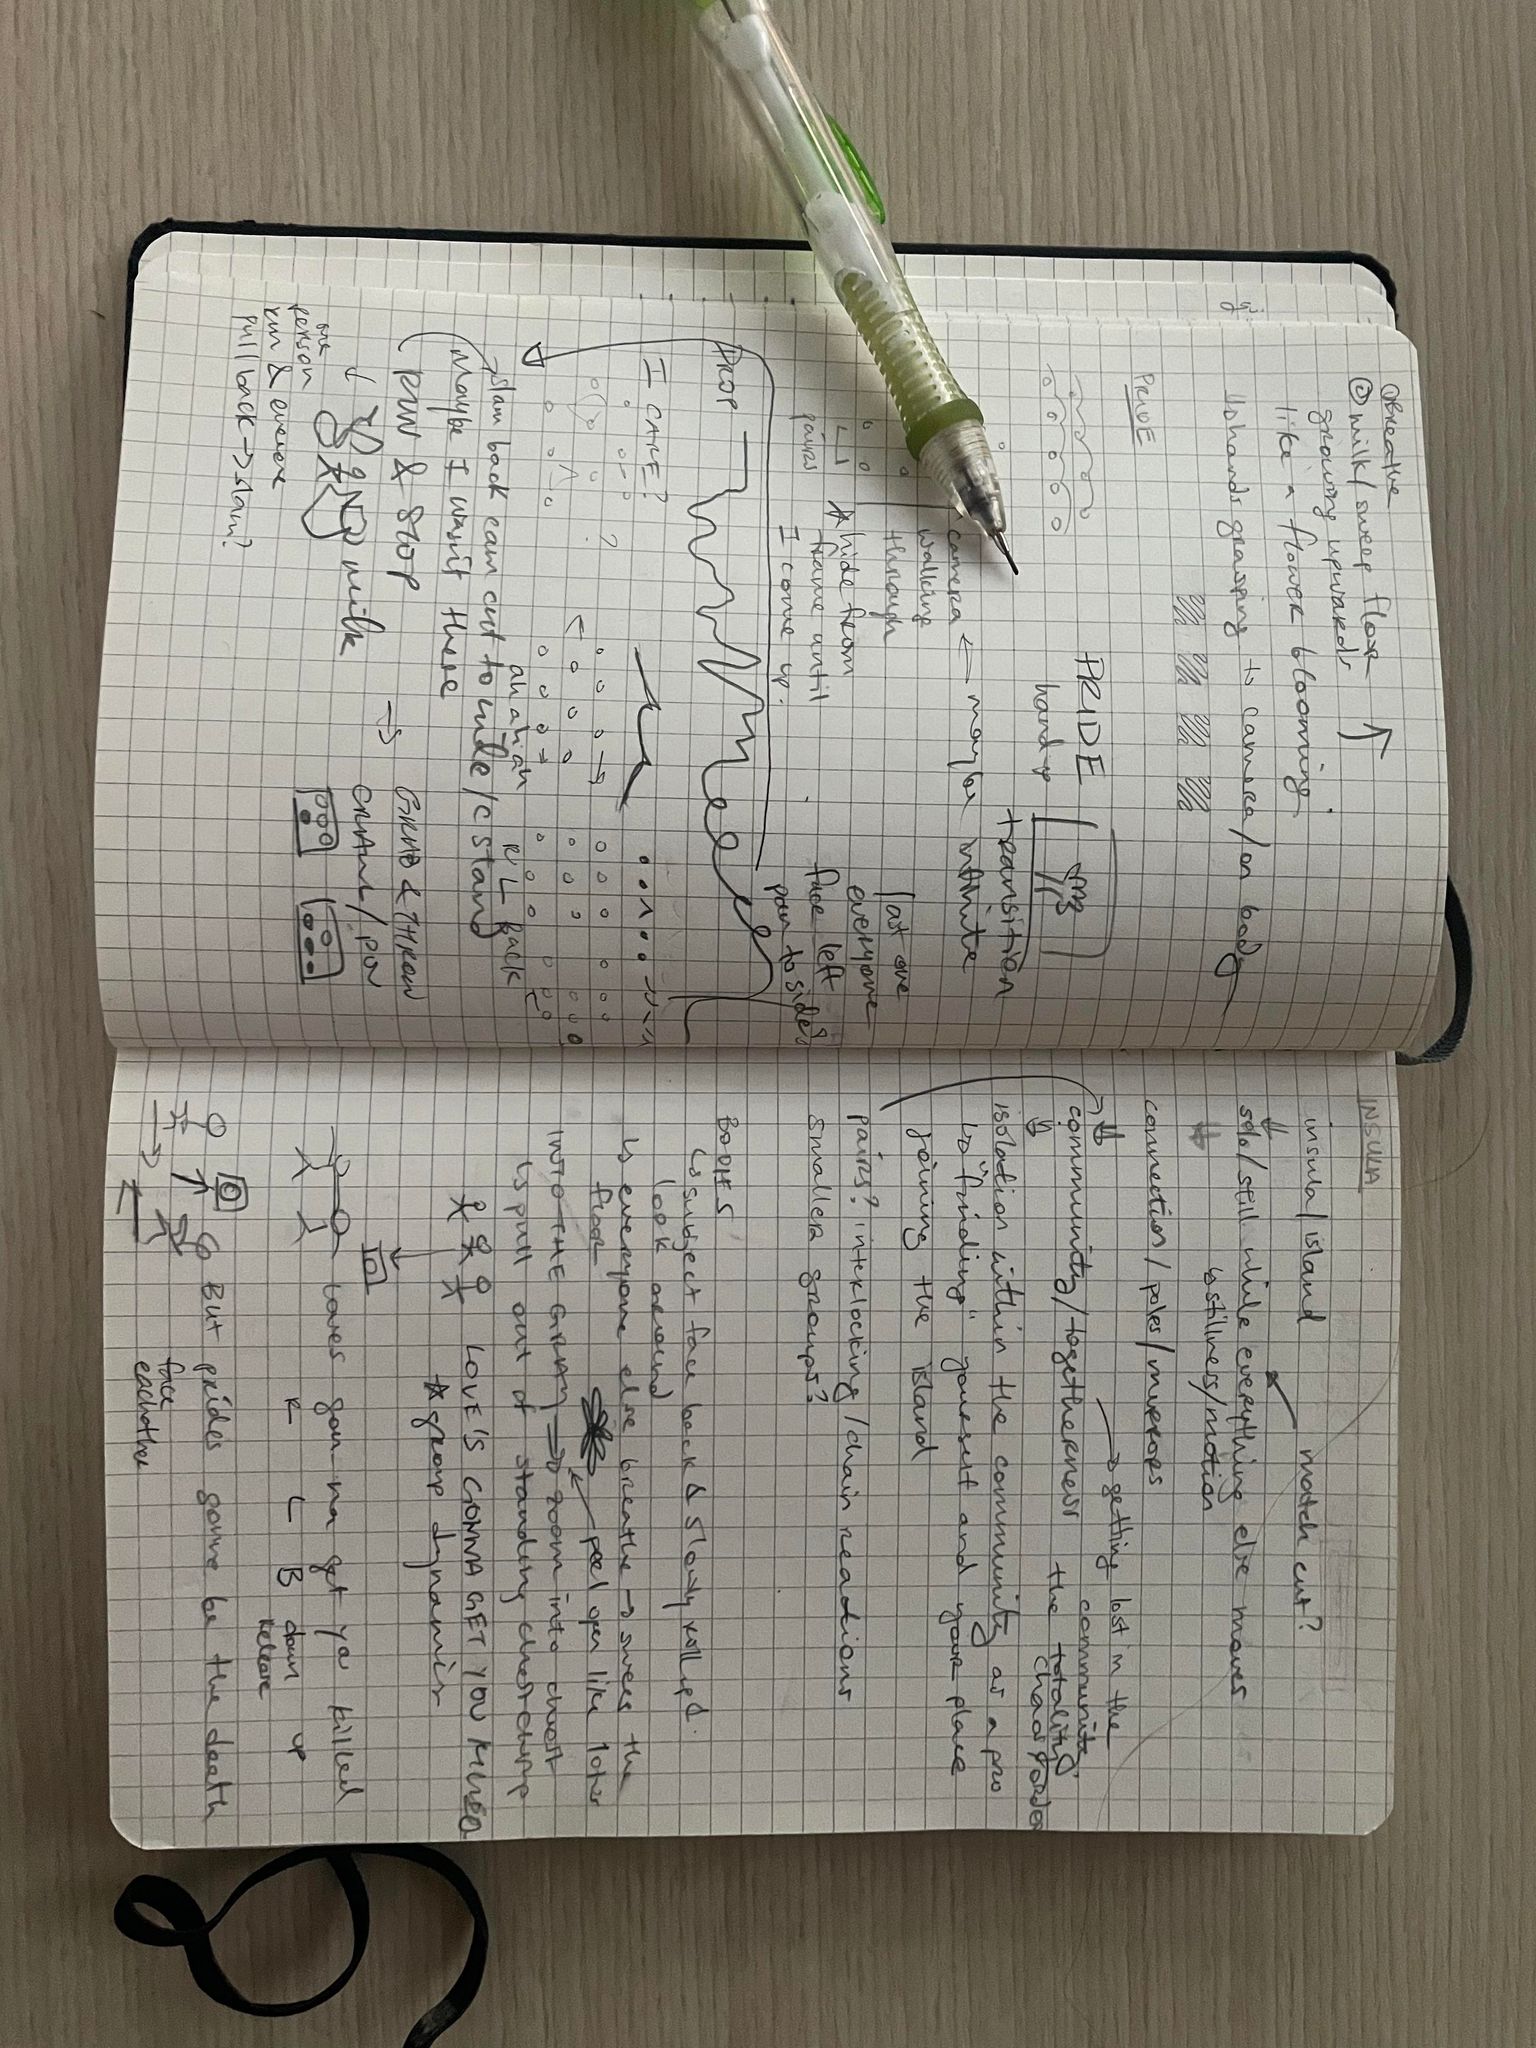 ① Breathe
② milk/sweep floor
growing upwards
like a flower blooming
↳ hands grasping to camera/on body
PRIDE
PRIDE
hand up
transition
maybe infinite
camera
walking
through
hide from
frame until
I come up.
pairs
last one
everyone
face left
pan to side?
DROP
I CARE?
?
ah ah ah
R L Back
slam back cam cut to wide/c stand
Maybe I wasn't there
RUN & STOP
milk
one
person
run & everyone
pull back → slam?
→ GRAB & THROW
CRAWL/POV
INSULA
insula/island
match cut?
solo/still while everything else moves
↳ stillness/motion
connection/poles/mirrors
→ getting lost in the
community,
community/togetherness
the totality
chaos & order
isolation within the community as a pro
↳ "finding" yourself and your place
joining the island
pairs? interlocking/chain reactions
smaller groups?
BODIES
↳ subject face back & slowly roll up &
look around
↳ everyone else breathe → sweep the
floor
peel open like lotus
INTO THE GRAY → zoom into chest
↳ pull out of standing chest clump
LOVE'S GONNA GET YOU KILLED
☆ group dynamic
Loves gon na get ya killed
R L B down up
release
But prides gonna be the death
face
eachother